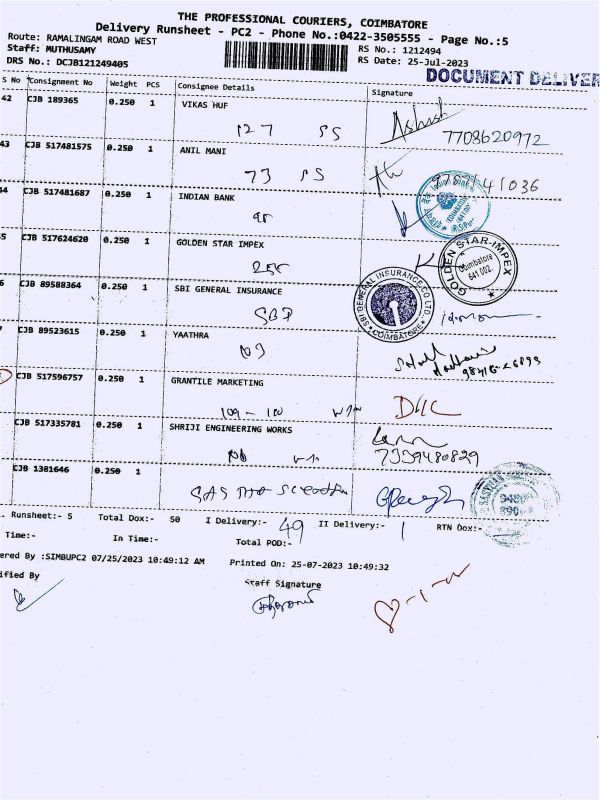 THE PROFESSIONAL COURIERS, COIMBATORE
Delivery Runsheet - PC2 - Phone No.:0422-3505555 - Page No.:5
Route: RAMALINGAM ROAD WEST
Staff: MUTHUSAMY
RS No.: 1212494
DRS No.: DCJB121249405
RS Date: 25-Jul-2023
DOCUMENT DELIVER
S No Consignment No Weight PCS Consignee Details Signature
42 CJB 189365 0.250 1 VIKAS HUF
127 PS
Ashish
7708620972
43 CJB 517481575 0.250 1 ANIL MANI
73 PS
41036
44 CJB 517481687 0.250 1 INDIAN BANK
5 CJB 517624620 0.250 1 GOLDEN STAR IMPEX
GOLDEN STAR-IMPEX
Coimbatore
641 002.
6 CJB 89588364 0.250 1 SBI GENERAL INSURANCE
SBI GENERAL INSURANCE CO. LTD.
COIMBATORE
CJB 89523615 0.250 1 YAATHRA
103
CJB 517596757 0.250 1 GRANTILE MARKETING
109 - 100
D/C
CJB 517335781 0.250 1 SHRIJI ENGINEERING WORKS
7339480829
CJB 1381646 0.250 1
. Runsheet:- 5 Total Dox:- 50 I Delivery:- 49 II Delivery:- 1 RTN Dox:-
Time:- In Time:- Total POD:-
ered By :SIMBUPC2 07/25/2023 10:49:12 AM Printed On: 25-07-2023 10:49:32
ified By
Staff Signature